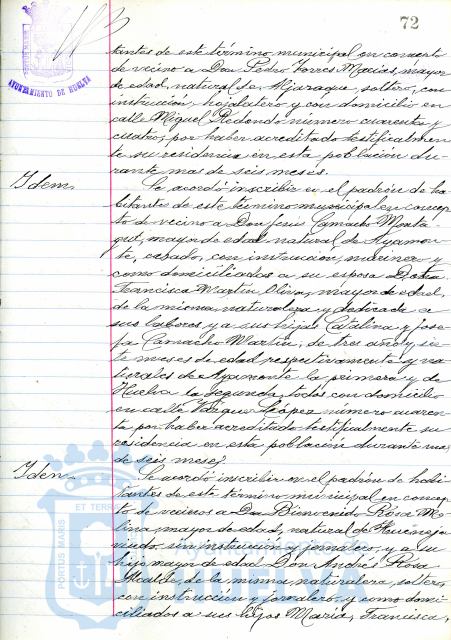 72
AYUNTAMIENTO DE HUELVA
tantes de este término municipal en concepto
de vecino a Don Pedro Torres Macias, mayor
de edad, natural de Aljaraque, soltero, con
instruccion, hojalatero y con domicilio en
calle Miguel Redondo número cuarenta y
cuatro, por haber acreditado testificalmen-
te su residencia en esta poblacion du-
rante mas de seis meses.
Idem.
Se acordó inscribir en el padrón de ha-
bitantes de este término municipal en concep-
to de vecino a Don José Camacho
mayor de edad natural de Ayamon-
te, casado, con instruccion, marinero y
como domiciliadas a su esposa Doña
Francisca Martin Oliva, mayor de edad,
de la misma naturaleza y dedicada a
sus labores y a sus hijas Catalina y Jose-
fa Camacho Martin, de tres años y sie-
te meses de edad respectivamente y na-
turales de Ayamonte la primera y de
Huelva la segunda, todos con domicilio
en calle Vazquez Lopez número cuaren-
ta por haber acreditado testificalmente su
residencia en esta poblacion durante mas
de seis meses.
Idem.
Se acordó inscribir en el padrón de habi-
tantes de este término municipal en concep-
to de vecinos a Don Bienvenido Rosa Mo-
lina mayor de edad, natural de
sin instruccion y jornalero, y a su
hijo mayor de edad Don Andrés Rosa
Alcalde, de la misma naturaleza, soltero,
con instruccion y jornalero, y como domi-
ciliados a sus hijos Maria, Francisca,
PORTUS MARIS ET TERRAE